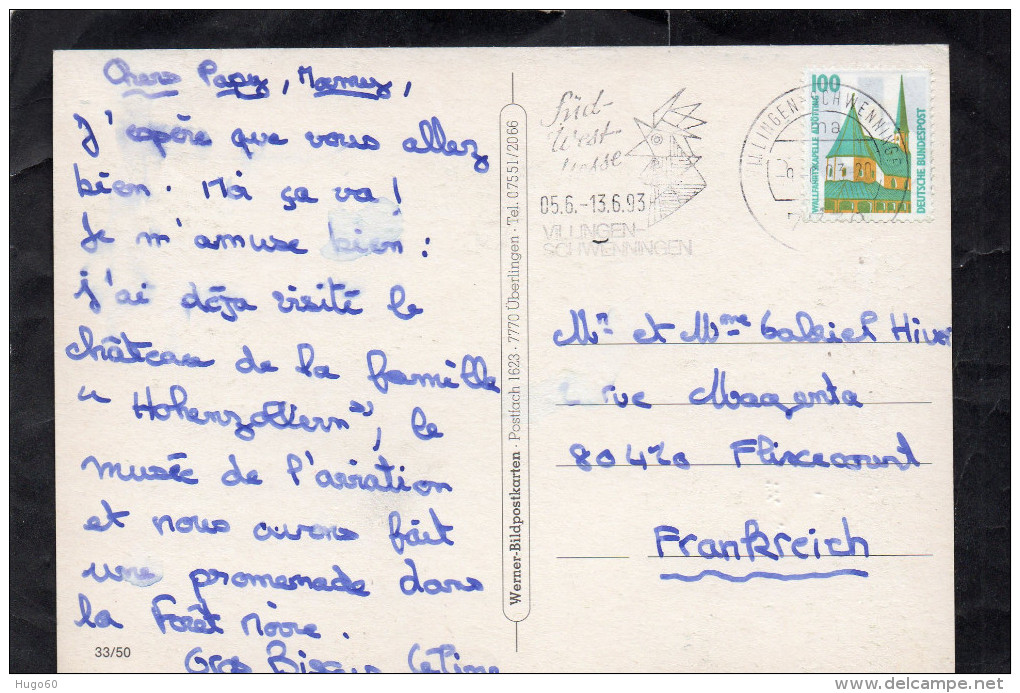 Chers Papy, Mamy,
J'espère que vous allez
bien. Moi ça va !
Je m'amuse bien :
j'ai déja visité le
château de la famille
"Hohenzollern", le
musée de l'aviation
et nous avons fait
une promenade dans
la Forêt Noire.
Gros Bisous Celine
33/50
Werner-Bildpostkarten · Postfach 1623 · 7770 Überlingen · Tel. 07551/2066
Süd-
West-
messe
05.6.-13.6.93
VILLINGEN-
SCHWENNINGEN
VILLINGEN-SCHWENNINGEN
100
WALLFAHRTSKAPELLE ALTÖTTING
DEUTSCHE BUNDESPOST
Mr et Mme Gabriel
rue Magenta
80420 Flixecourt
Frankreich
Hugo60
www.delcampe.net